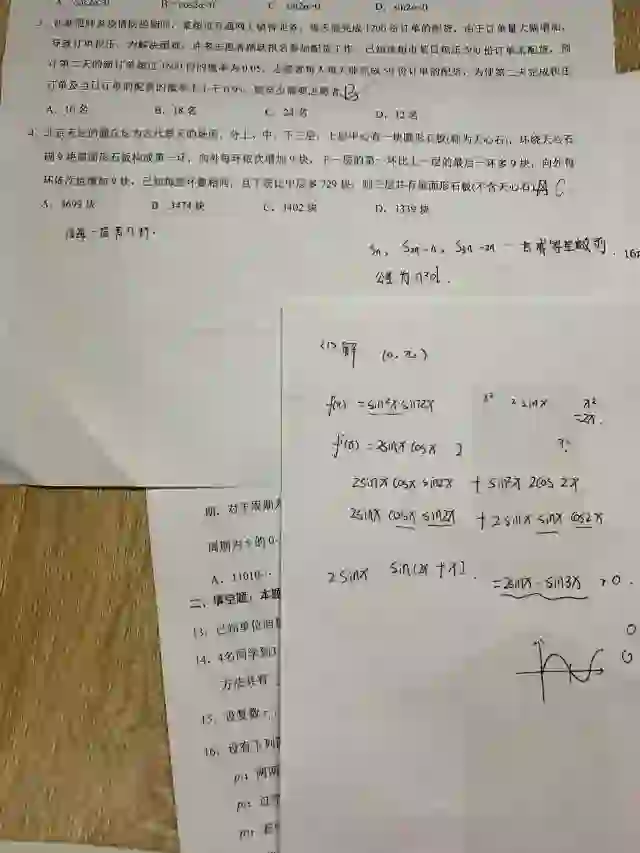 A. cos2α>0 B. cos2α<0 C. sin2α>0 D. sin2α<0
在新冠肺炎疫情防控期间，某超市开通网上销售业务，每天能完成1200份订单的配货，由于订单量大幅增加，
导致订单积压．为解决困难，许多志愿者踊跃报名参加配货工作．已知该超市某日积压500份订单未配货，预
计第二天的新订单超过1600份的概率为0.05，志愿者每人每天能完成50份订单的配货，为使第二天完成积压
订单及当日订单的配货的概率不小于0.95，则至少需要志愿者 B
A．10名 B．18名 C．24名 D．32名
4．北京天坛的圜丘坛为古代祭天的场所，分上、中、下三层，上层中心有一块圆形石板(称为天心石)，环绕天心石
砌9块扇面形石板构成第一环，向外每环依次增加9块，下一层的第一环比上一层的最后一环多9块，向外每
环依次也增加9块，已知每层环数相同，且下层比中层多729块，则三层共有扇面形石板(不含天心石) C
3699块 B．3474块 C．3402块 D．3339块
设每一层有n环．
Sn, S2n-n, S3n-2n
公差为n²d．
16
(1) 解 (0, π)
f(x) = sin²x sin2x
x² 2 sinx x²
=2x．
f'(x) = 2sinx cosx 2
2sinx cosx sin2x + sin²x 2cos2x
2sinx cosx sin2x + 2sinx sinx cos2x
2sinx sin(2x+x) = 2sinx · sin3x > 0．
期．对于周期
周期为5的0-
A．11010…
二、填空题：本题
13．已知单位向量
14．4名同学到3
方法共有
15．设复数z
16．设有下列
p₁：两两
p₂：过